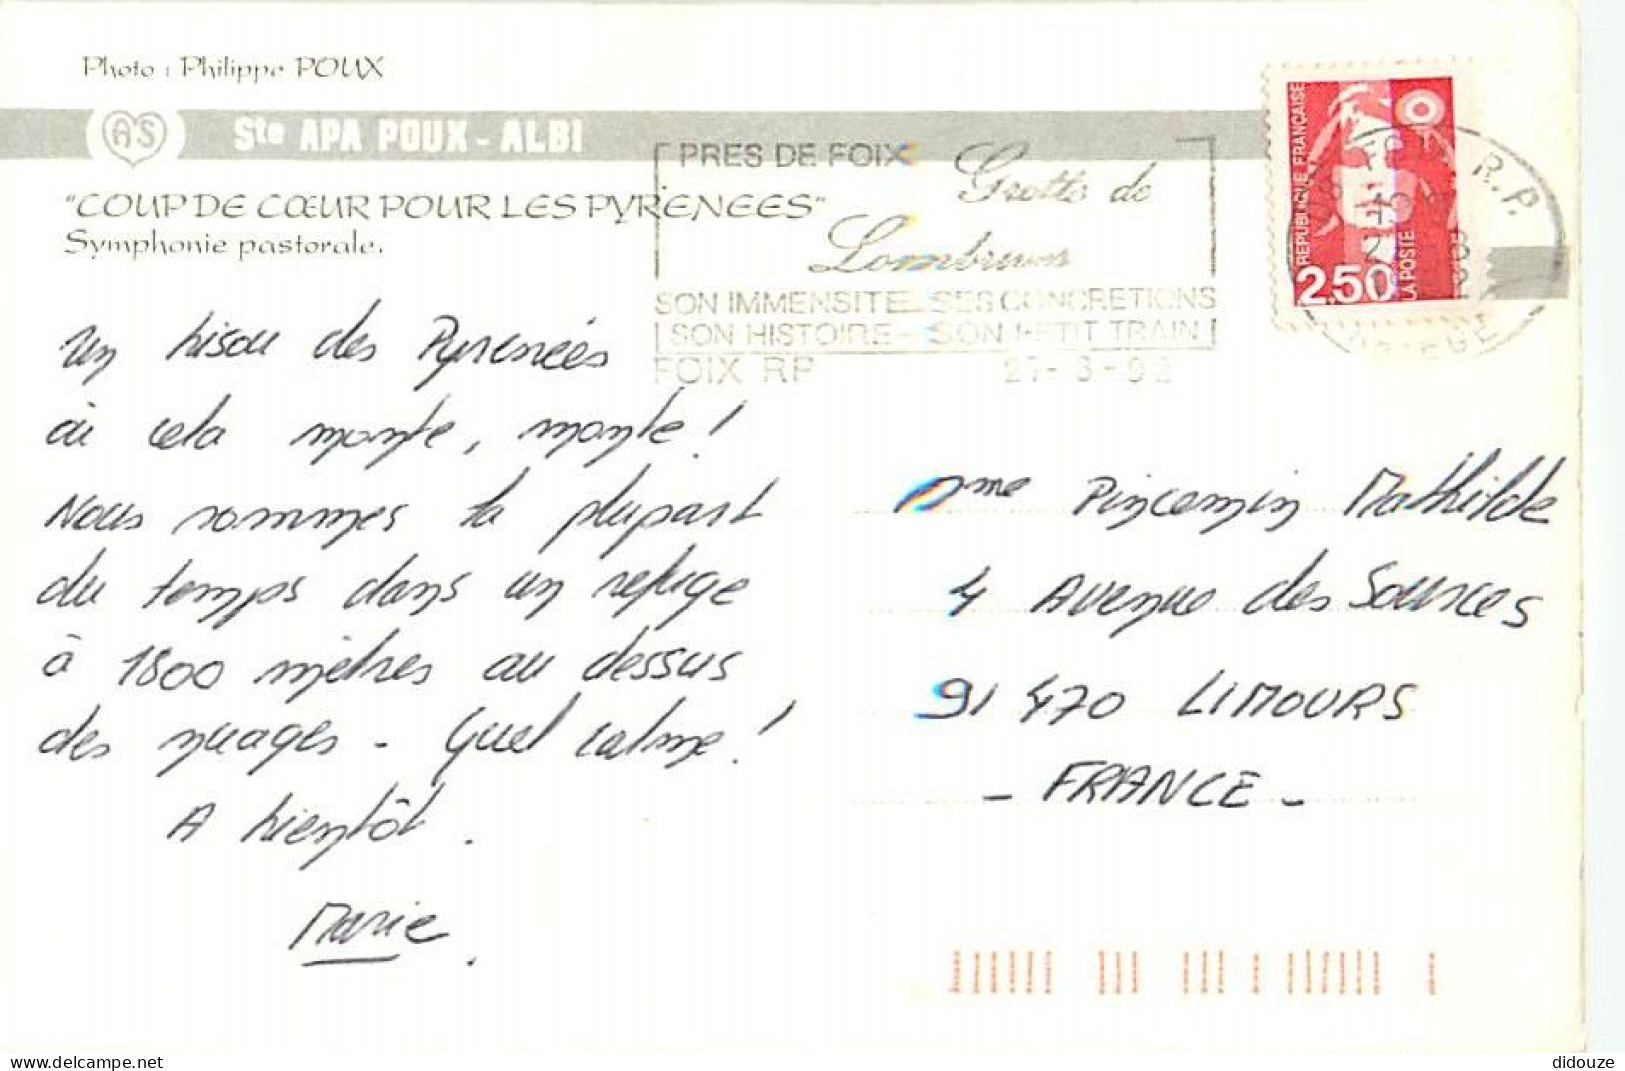 Photo : Philippe POUX
AS
Ste APA POUX - ALBI
"COUP DE CŒUR POUR LES PYRENEES"
Symphonie pastorale.
PRES DE FOIX
Grotte de
Lombrives
SON IMMENSITE SES CONCRETIONS
SON HISTOIRE - SON PETIT TRAIN
FOIX RP 27-8-92
REPUBLIQUE FRANÇAISE
2,50
LA POSTE
R.P.
ARIEGE
Un bisou des Pyrénées
où cela monte, monte !
Nous sommes la plupart
du temps dans un refuge
à 1800 mètres au dessus
des nuages - Quel calme !
A bientôt.
Marie.
Mme Pincemin Mathilde
4 Avenue des Sources
91 470 LIMOURS
- FRANCE -
didouze